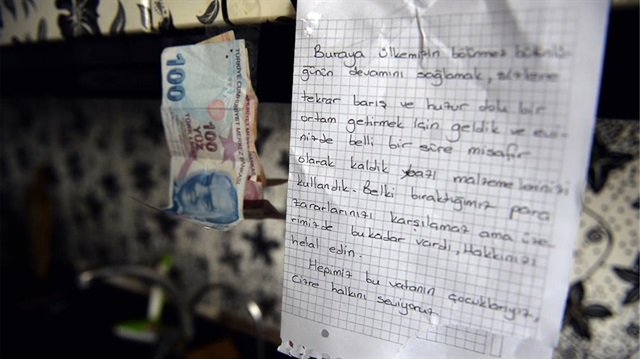 100
TÜRKİYE CUMHURİYET MERKEZ BANKASI
100
YÜZ
Buraya ülkemizin bölünmez bütünlü-
ğünün devamını sağlamak, sizlere
tekrar barış ve huzur dolu bir
ortam getirmek için geldik ve evi-
nizde belli bir süre misafir
olarak kaldık bazı malzemelerinizi
kullandık. Belki bıraktığımız para
zararlarınızı karşılamaz ama üze-
rimizde bu kadar vardı, Hakkınızı
helal edin.
Hepimiz bu vatanın çocuklarıyız,
Cizre halkını seviyoruz